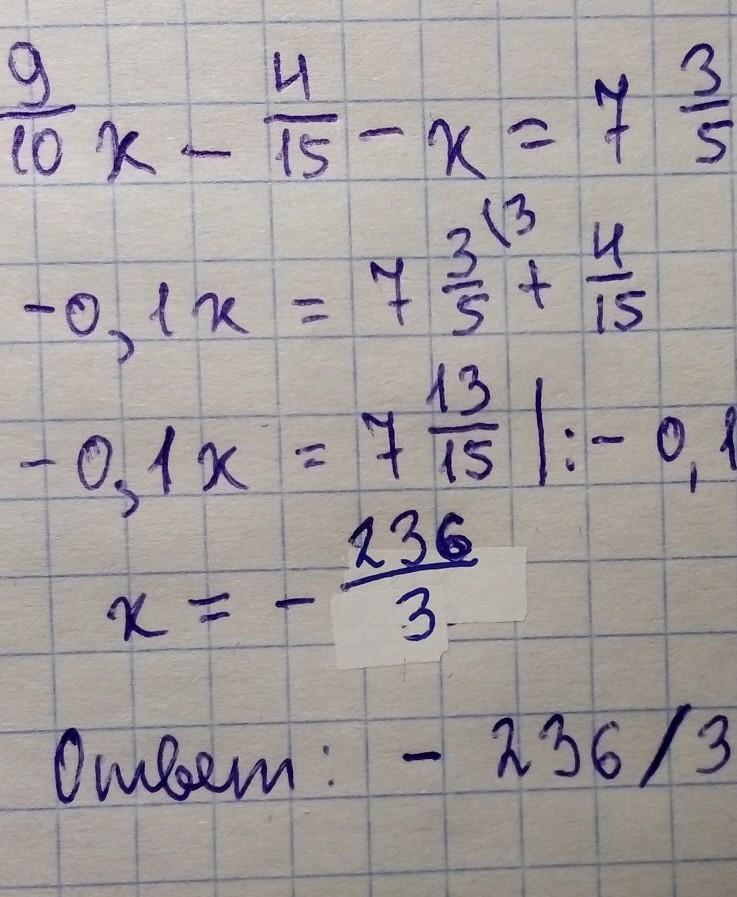 9/10 x - 4/15 - x = 7 3/5
-0,1x = 7 3/5 (3 + 4/15
-0,1x = 7 13/15 |:- 0,1
x = - 236/3
Ответ: - 236/3